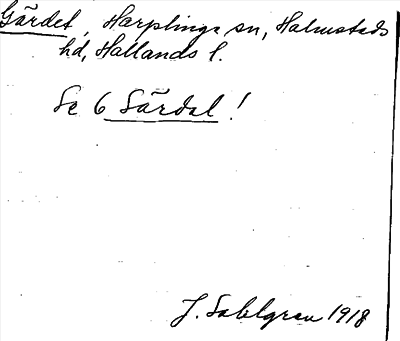 Gärdet, Harplinge sn, Halmstads
hd, Hallands l.
Se 6 Särdal !
J. Sahlgren 1918